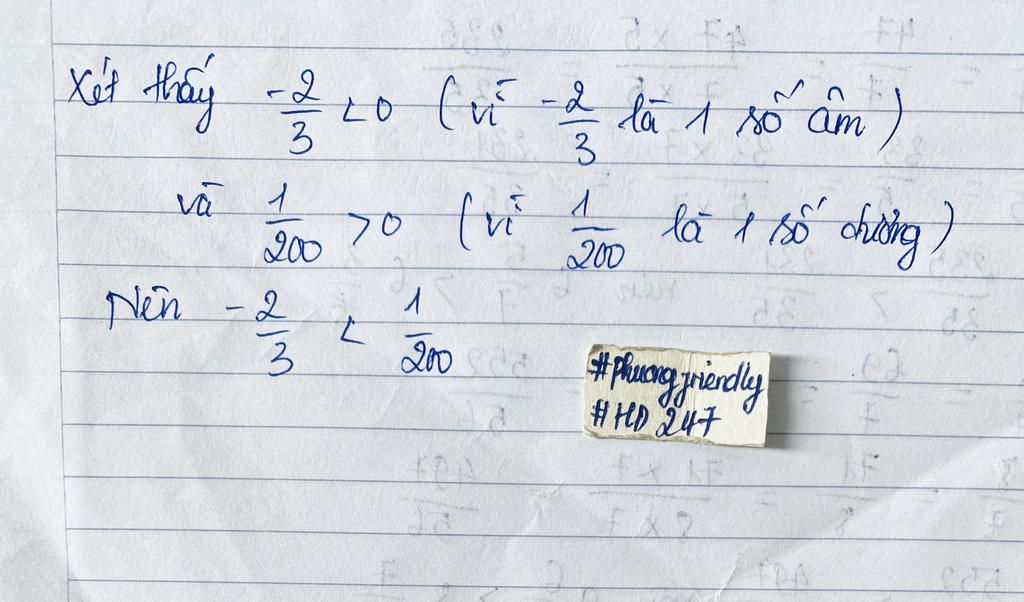 Xét thấy -2/3 < 0 (vì -2/3 là 1 số âm)
và 1/200 > 0 (vì 1/200 là 1 số dương)
Nên -2/3 < 1/200
#phuongfriendly
#HD 247